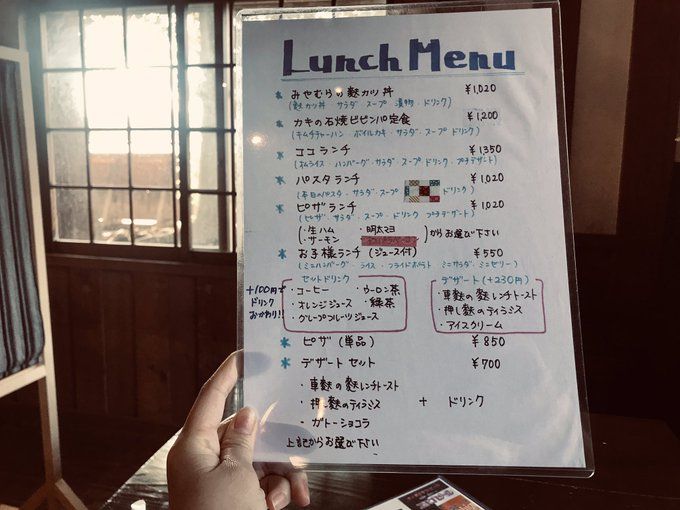 Lunch Menu
* みやむらの麩カツ丼 ¥1,020
(麩カツ丼 サラダ スープ 漬物・ドリンク)
* カキの石焼ビビンバ定食 ¥1,200
(キムチチャーハン・ボイルカキ・サラダ・スープ ドリンク)
* ココランチ ¥1350
(オムライス・ハンバーグ・サラダ・スープ ドリンク・プチデザート)
* パスタランチ ¥1,020
(本日のパスタ・サラダ・スープ ドリンク)
* ピザランチ ¥1,020
(ピザ・サラダ・スープ・ドリンク プチデザート)
(・生ハム ・明太マヨ
・サーモン )からお選び下さい
* お子様ランチ(ジュース付) ¥550
(ミニハンバーグ・ライス・フライドポテト ミニサラダ・ミニゼリー)
+100円で
ドリンク
おかわり!!
セットドリンク
・コーヒー ・ウーロン茶
・オレンジジュース ・緑茶
・グレープフルーツジュース
デザート(+230円)
・車麩の麩レンチトースト
・押し麩のティラミス
・アイスクリーム
* ピザ(単品) ¥850
* デザートセット ¥700
・車麩の麩レンチトースト
・押し麩のティラミス + ドリンク
・ガトーショコラ
上記からお選び下さい